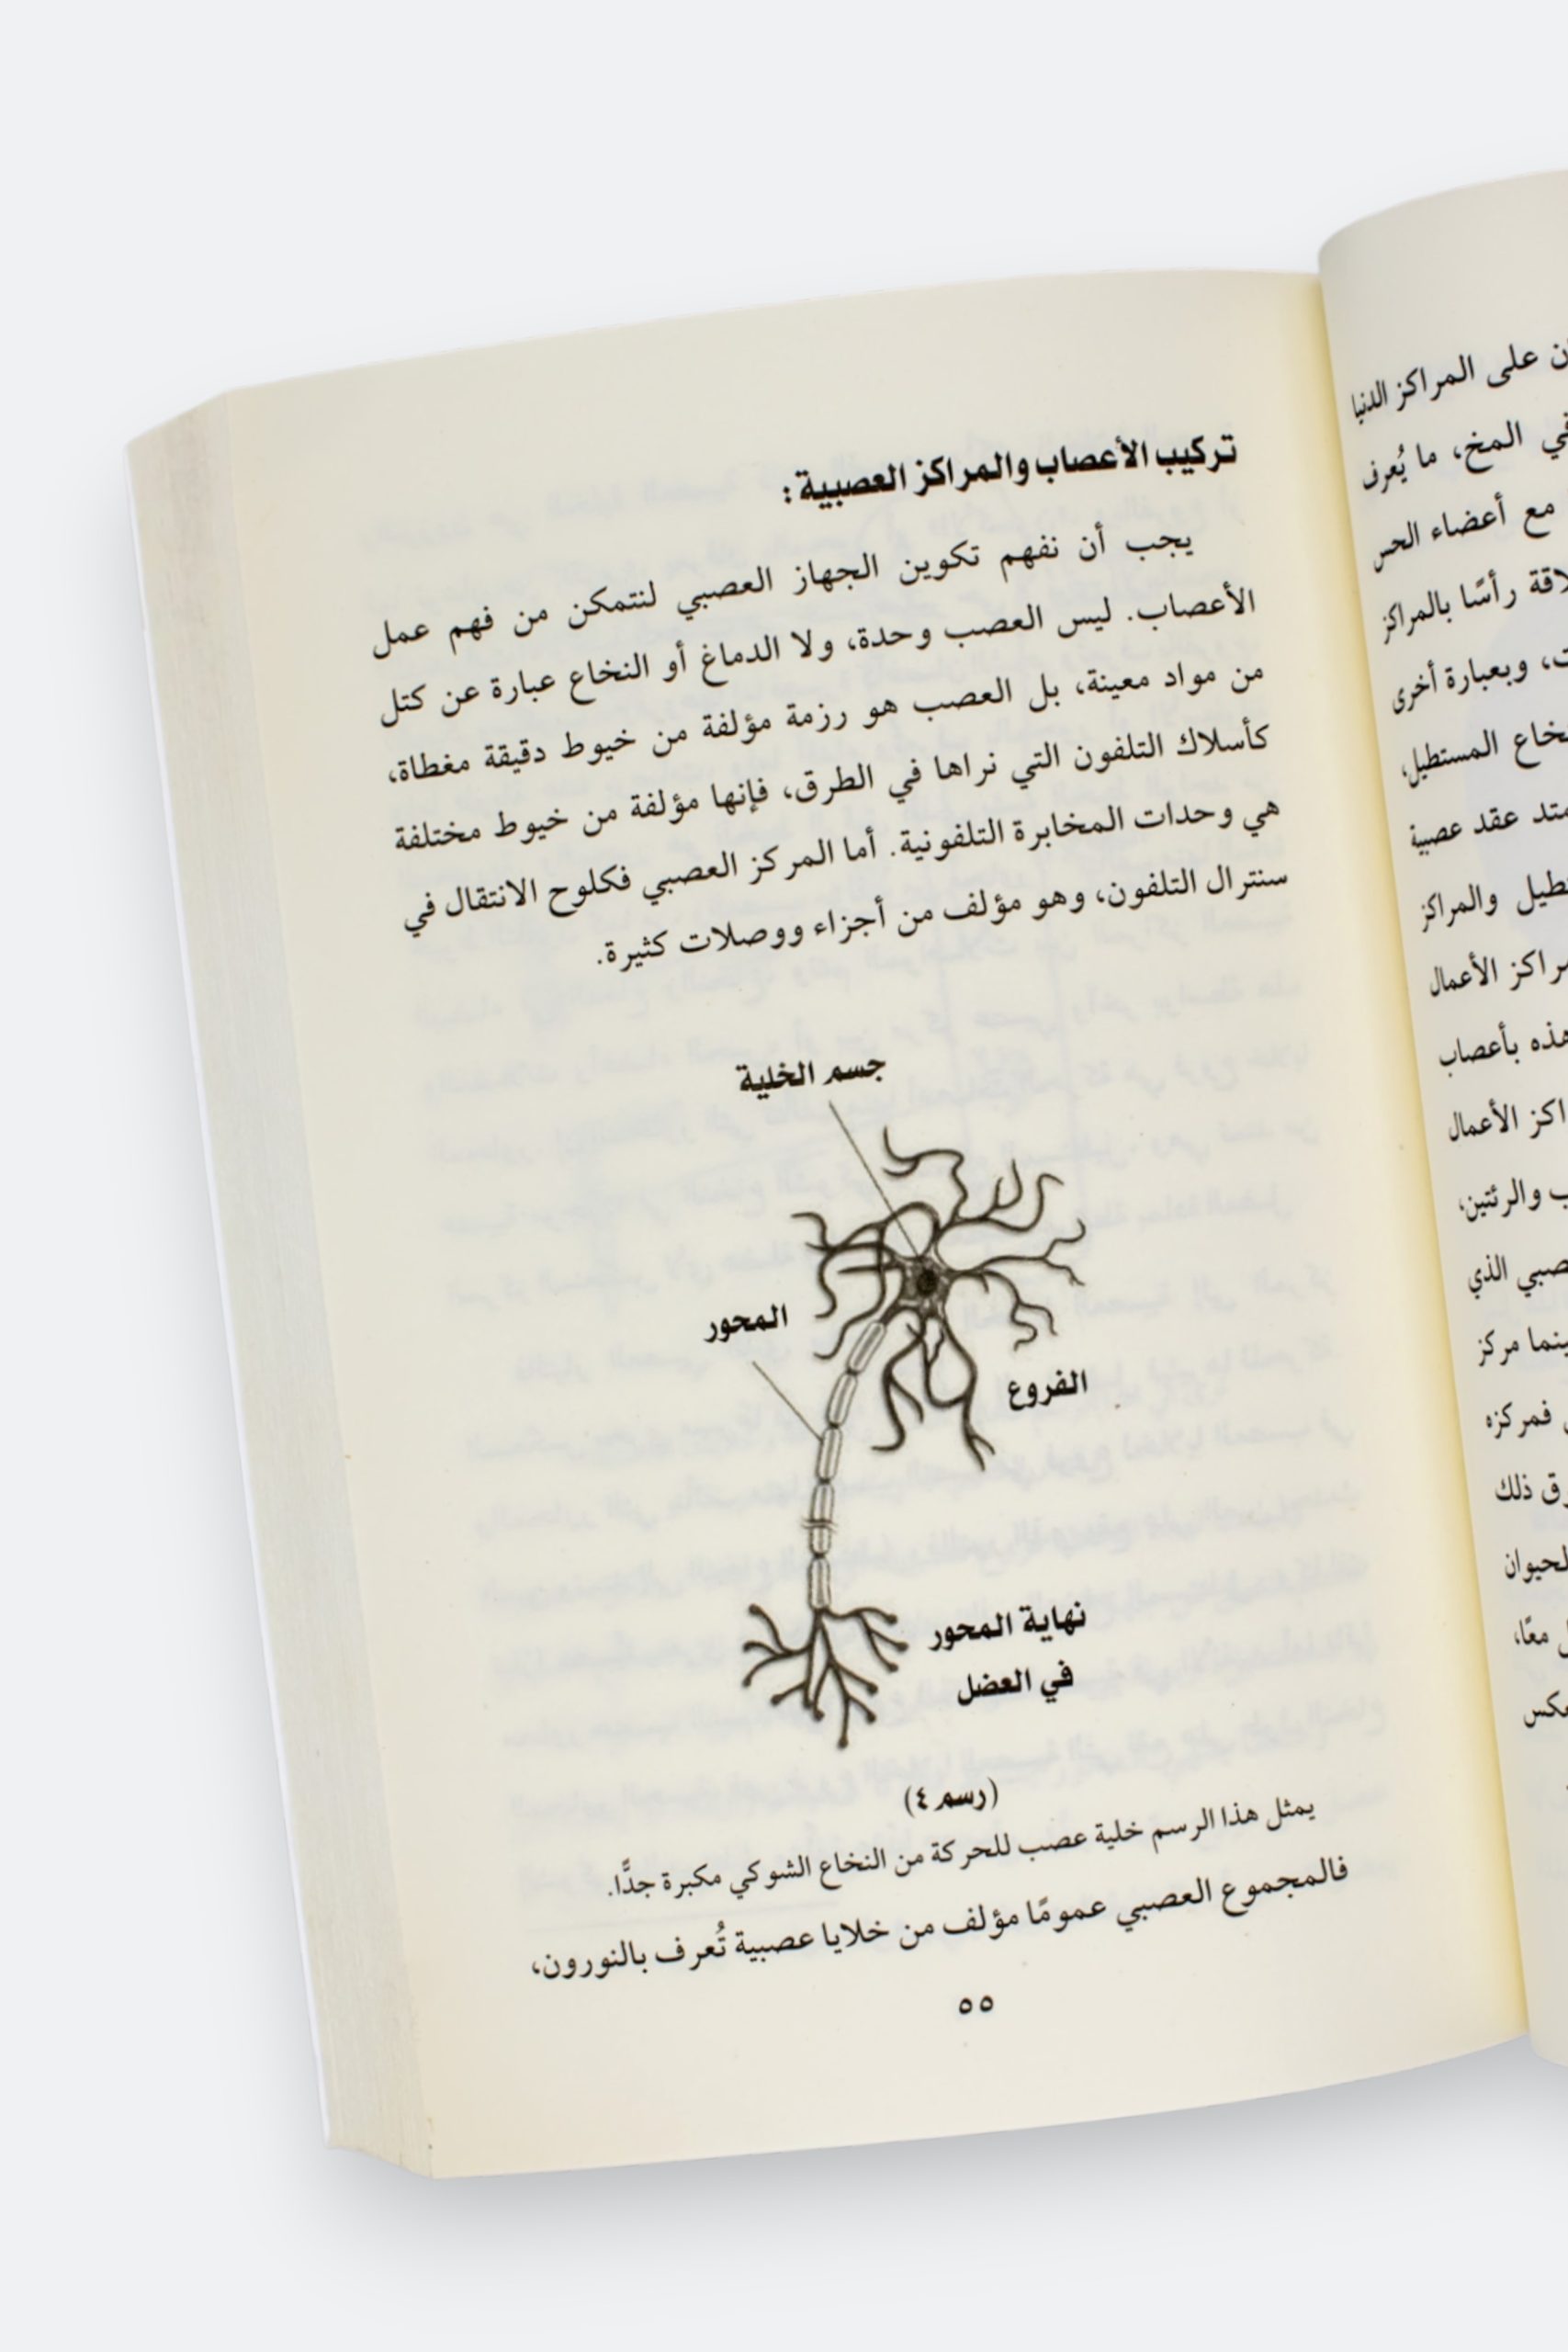 تركيب الأعصاب والمراكز العصبية :
يجب أن نفهم تكوين الجهاز العصبي لنتمكن من فهم عمل
الأعصاب. ليس العصب وحدة، ولا الدماغ أو النخاع عبارة عن كتل
من مواد معينة، بل العصب هو رزمة مؤلفة من خيوط دقيقة مغطاة،
كأسلاك التلفون التي نراها في الطرق، فإنها مؤلفة من خيوط مختلفة
هي وحدات المخابرة التلفونية. أما المركز العصبي فكلوح الانتقال في
سنترال التلفون، وهو مؤلف من أجزاء ووصلات كثيرة.
جسم الخلية
المحور
الفروع
نهاية المحور
في العضل
(رسم ٤)
يمثل هذا الرسم خلية عصب للحركة من النخاع الشوكي مكبرة جدًّا.
فالمجموع العصبي عمومًا مؤلف من خلايا عصبية تُعرف بالنورون،
٥٥
على المراكز الدنيا
المخ، ما يُعرف
مع أعضاء الحس
رأسًا بالمراكز
وبعبارة أخرى
المستطيل،
عقد عصبية
والمراكز
الأعمال
بأعصاب
الأعمال
والرئتين،
الذي
مركز
فمركزه
ذلك
معًا،